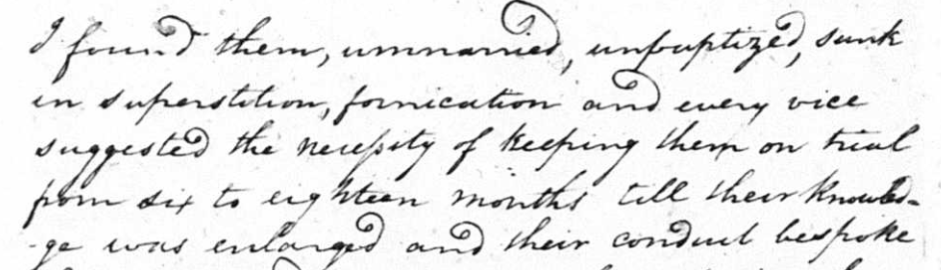 I found them, unmarried, unbaptized, sunk
in superstition, fornication and every vice
suggested the necessity of keeping them on trial
from six to eighteen months till their knowled-
ge was enlarged and their conduct bespoke